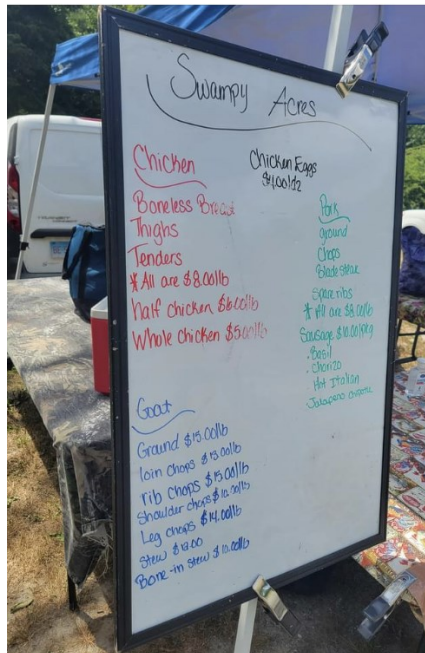 Swampy Acres
Chicken
Boneless Breast
Thighs
Tenders
*All are $8.00/lb
half chicken $6.00/lb
Whole chicken $5.00/lb
Chicken Eggs
$4.00/dz
Pork
ground
Chops
Blade steak
Spare ribs
* All are $8.00/lb
Sausage $10.00/pkg
. Basil
. Chorizo
Hot Italian
Jalapeno chipotle
Goat
Ground $15.00/lb
loin chops $15.00/lb
rib chops $15.00/lb
Shoulder chops
Leg chops $14.00/lb
Stew
Bone-in stew $10.00/lb